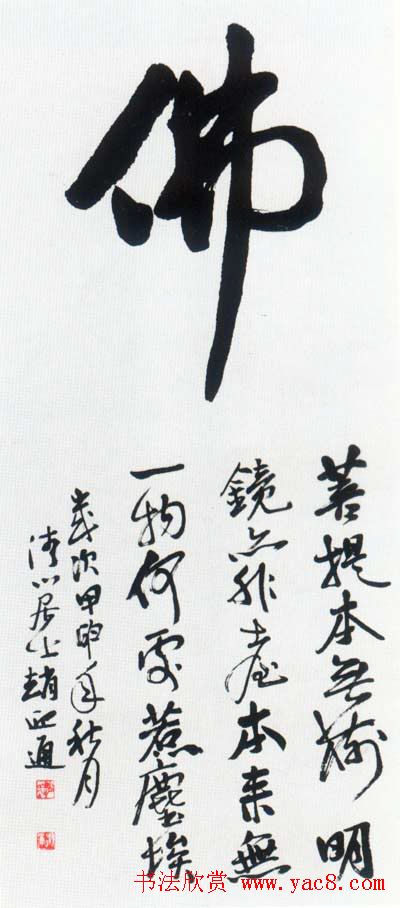 佛
菩提本无樹明
鏡亦非臺本来無
一物何處惹塵埃
歲次甲申年秋月
清心居士趙 通
书法欣赏 www.yac8.com